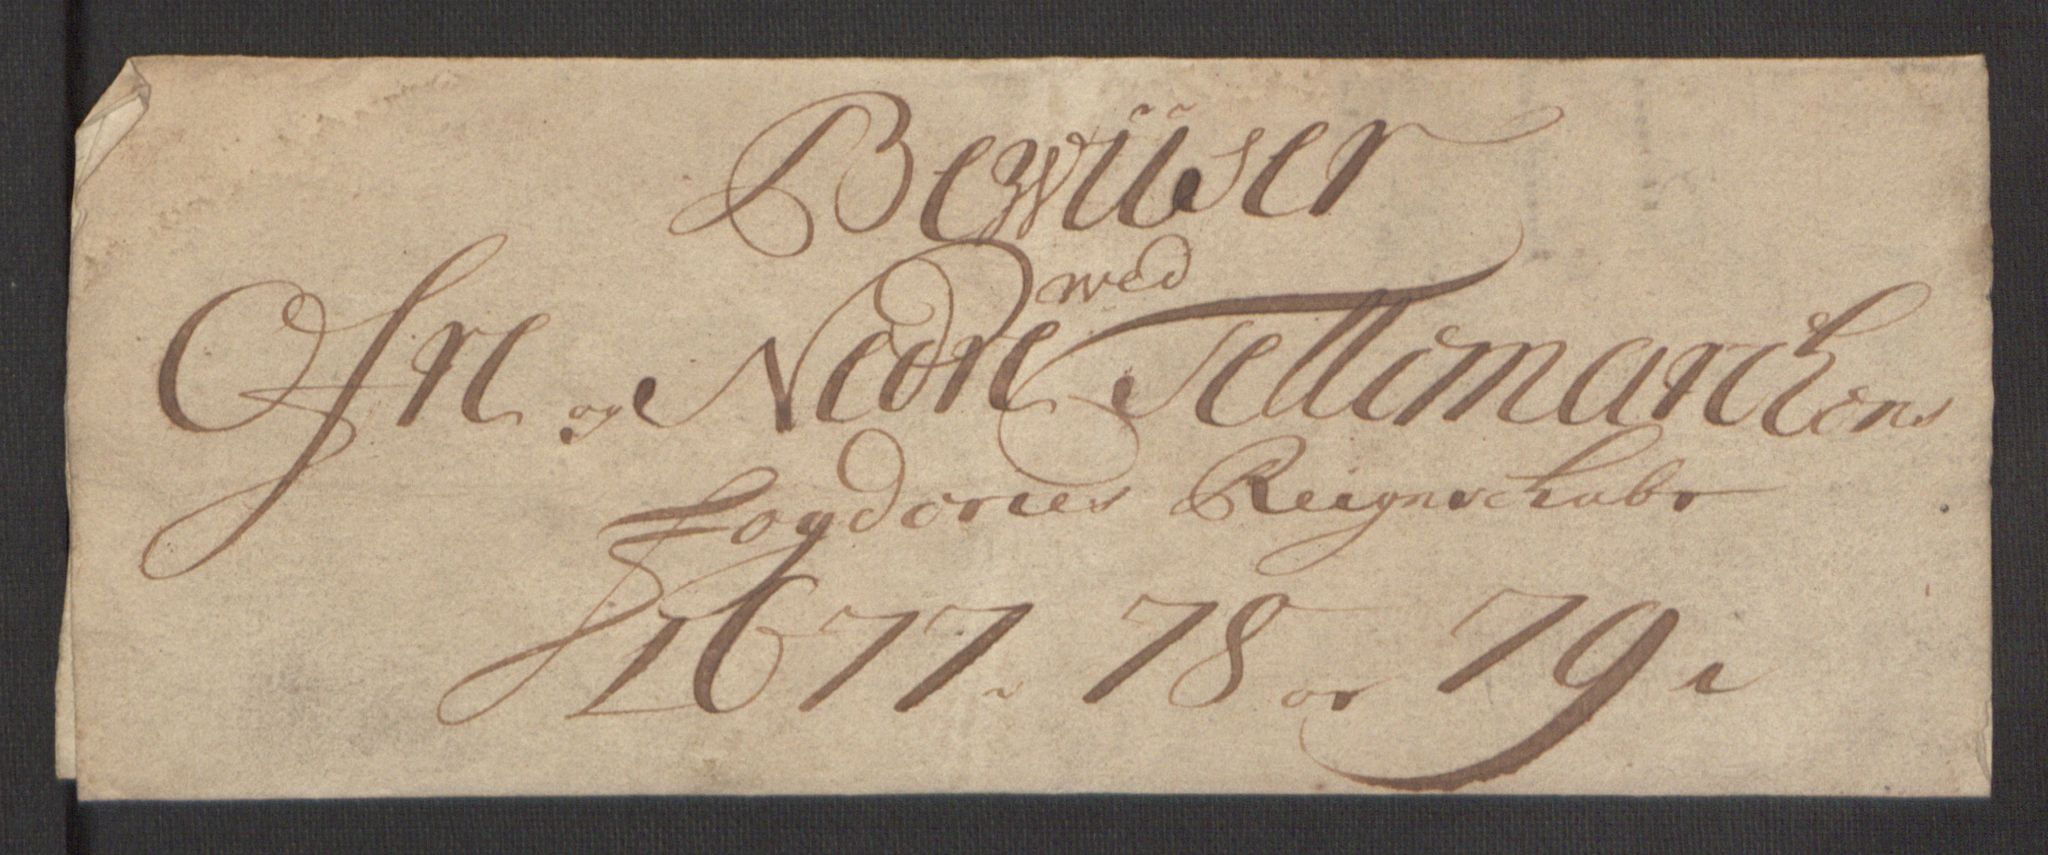 Bewiiser
wed
Øfre og Nedre Tellemarchens
Fogderies Reigenschaber
1677. 78 or 79.